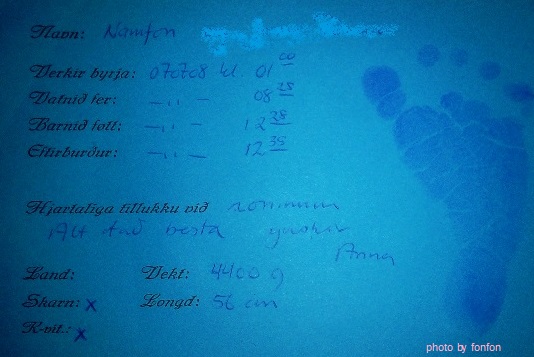 Navn: Namfon
Verkir byrja: 070708 kl. 01 00
Vatnið fer: — " — 08 25
Barnið føtt: — " — 12 28
Eftirburður: — " — 12 35
Hjartaliga tillukku við soninum
Alt tað besta ynskir
Anna
Land: Vekt: 4400 g
Skarn: x Longd: 56 cm
K-vit.: x
photo by fonfon